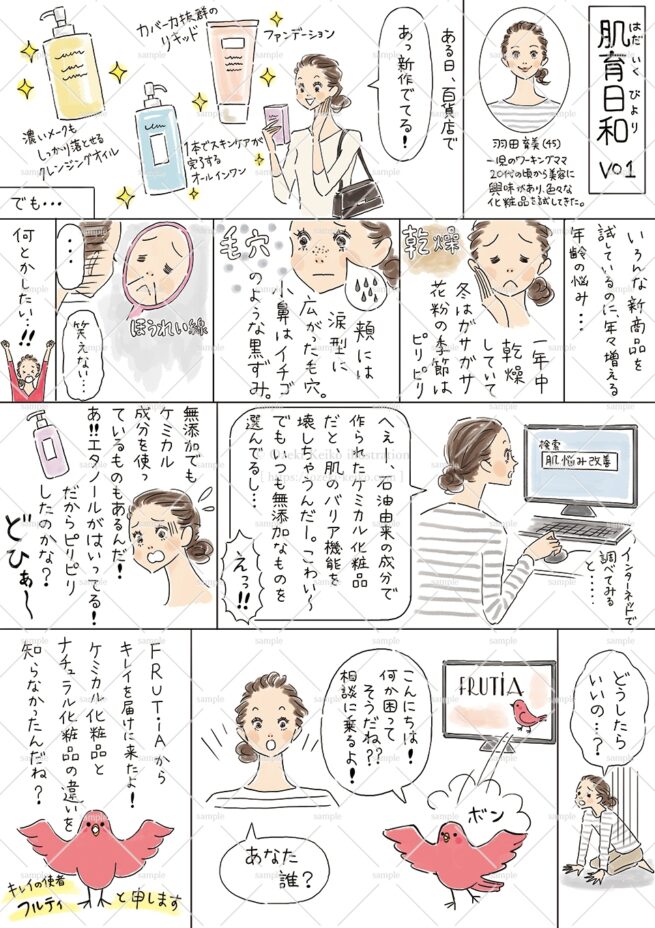 肌育日和
はだ いく びより
Vo1
羽田育美(45)
一児のワーキングママ
20代の頃から美容に
興味があり、色々な
化粧品を試してきた。
ある日、百貨店で
あっ新作でてる!
ファンデーション
カバー力抜群の
リキッド
1本でスキンケアが
完了する
オールインワン
濃いメークも
しっかり落とせる
クレンジングオイル
でも…
いろんな新商品を
試しているのに、年々増える
年齢の悩み…
乾燥
一年中
乾燥
していて
冬はガサガサ
花粉の季節は
ピリピリ
毛穴
頬には
涙型に
広がった毛穴。
小鼻はイチゴ
のような黒ずみ。
ほうれい線
…
笑えな…
何とかしたい・・!!
インターネットで
調べてみる
と……
検索
肌悩み改善
へぇー、石油由来の成分で
作られたケミカル化粧品
だと肌のバリア機能を
壊しちゃうんだー。こわい〜
でもいつも無添加なものを
選んでるし…
えっ!!
無添加でも
ケミカル
成分を使っ
ているものもあるんだ!
あ!!エタノールがはいってる!
だからピリピリ
したのかな?
どひぁ〜
どうしたら
いいの…?
FRUTiA
ボン
こんにちは!
何か困って
そうだね??
相談に乗るよ!
あなた
誰?
FRUTiAから
キレイを届けに来たよ!
ケミカル化粧品と
ナチュラル化粧品の違いを
知らなかったんだね?
キレイの使者
フルティ
と申します
Ozeki Keiko illustration
sample